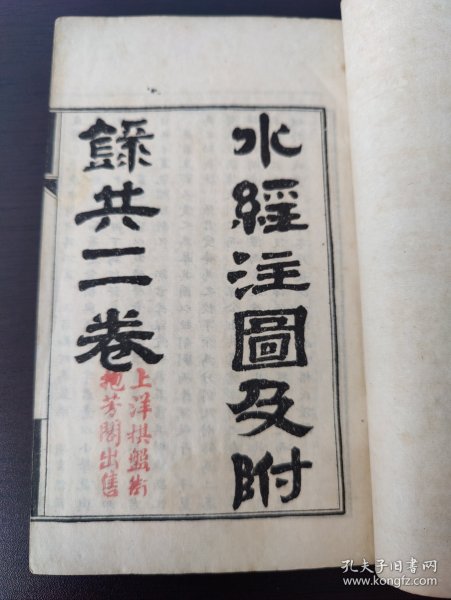 水經注圖及附
錄共二卷
上洋棋盤街
抱芳閣出售
孔夫子旧书网
www.kongfz.com